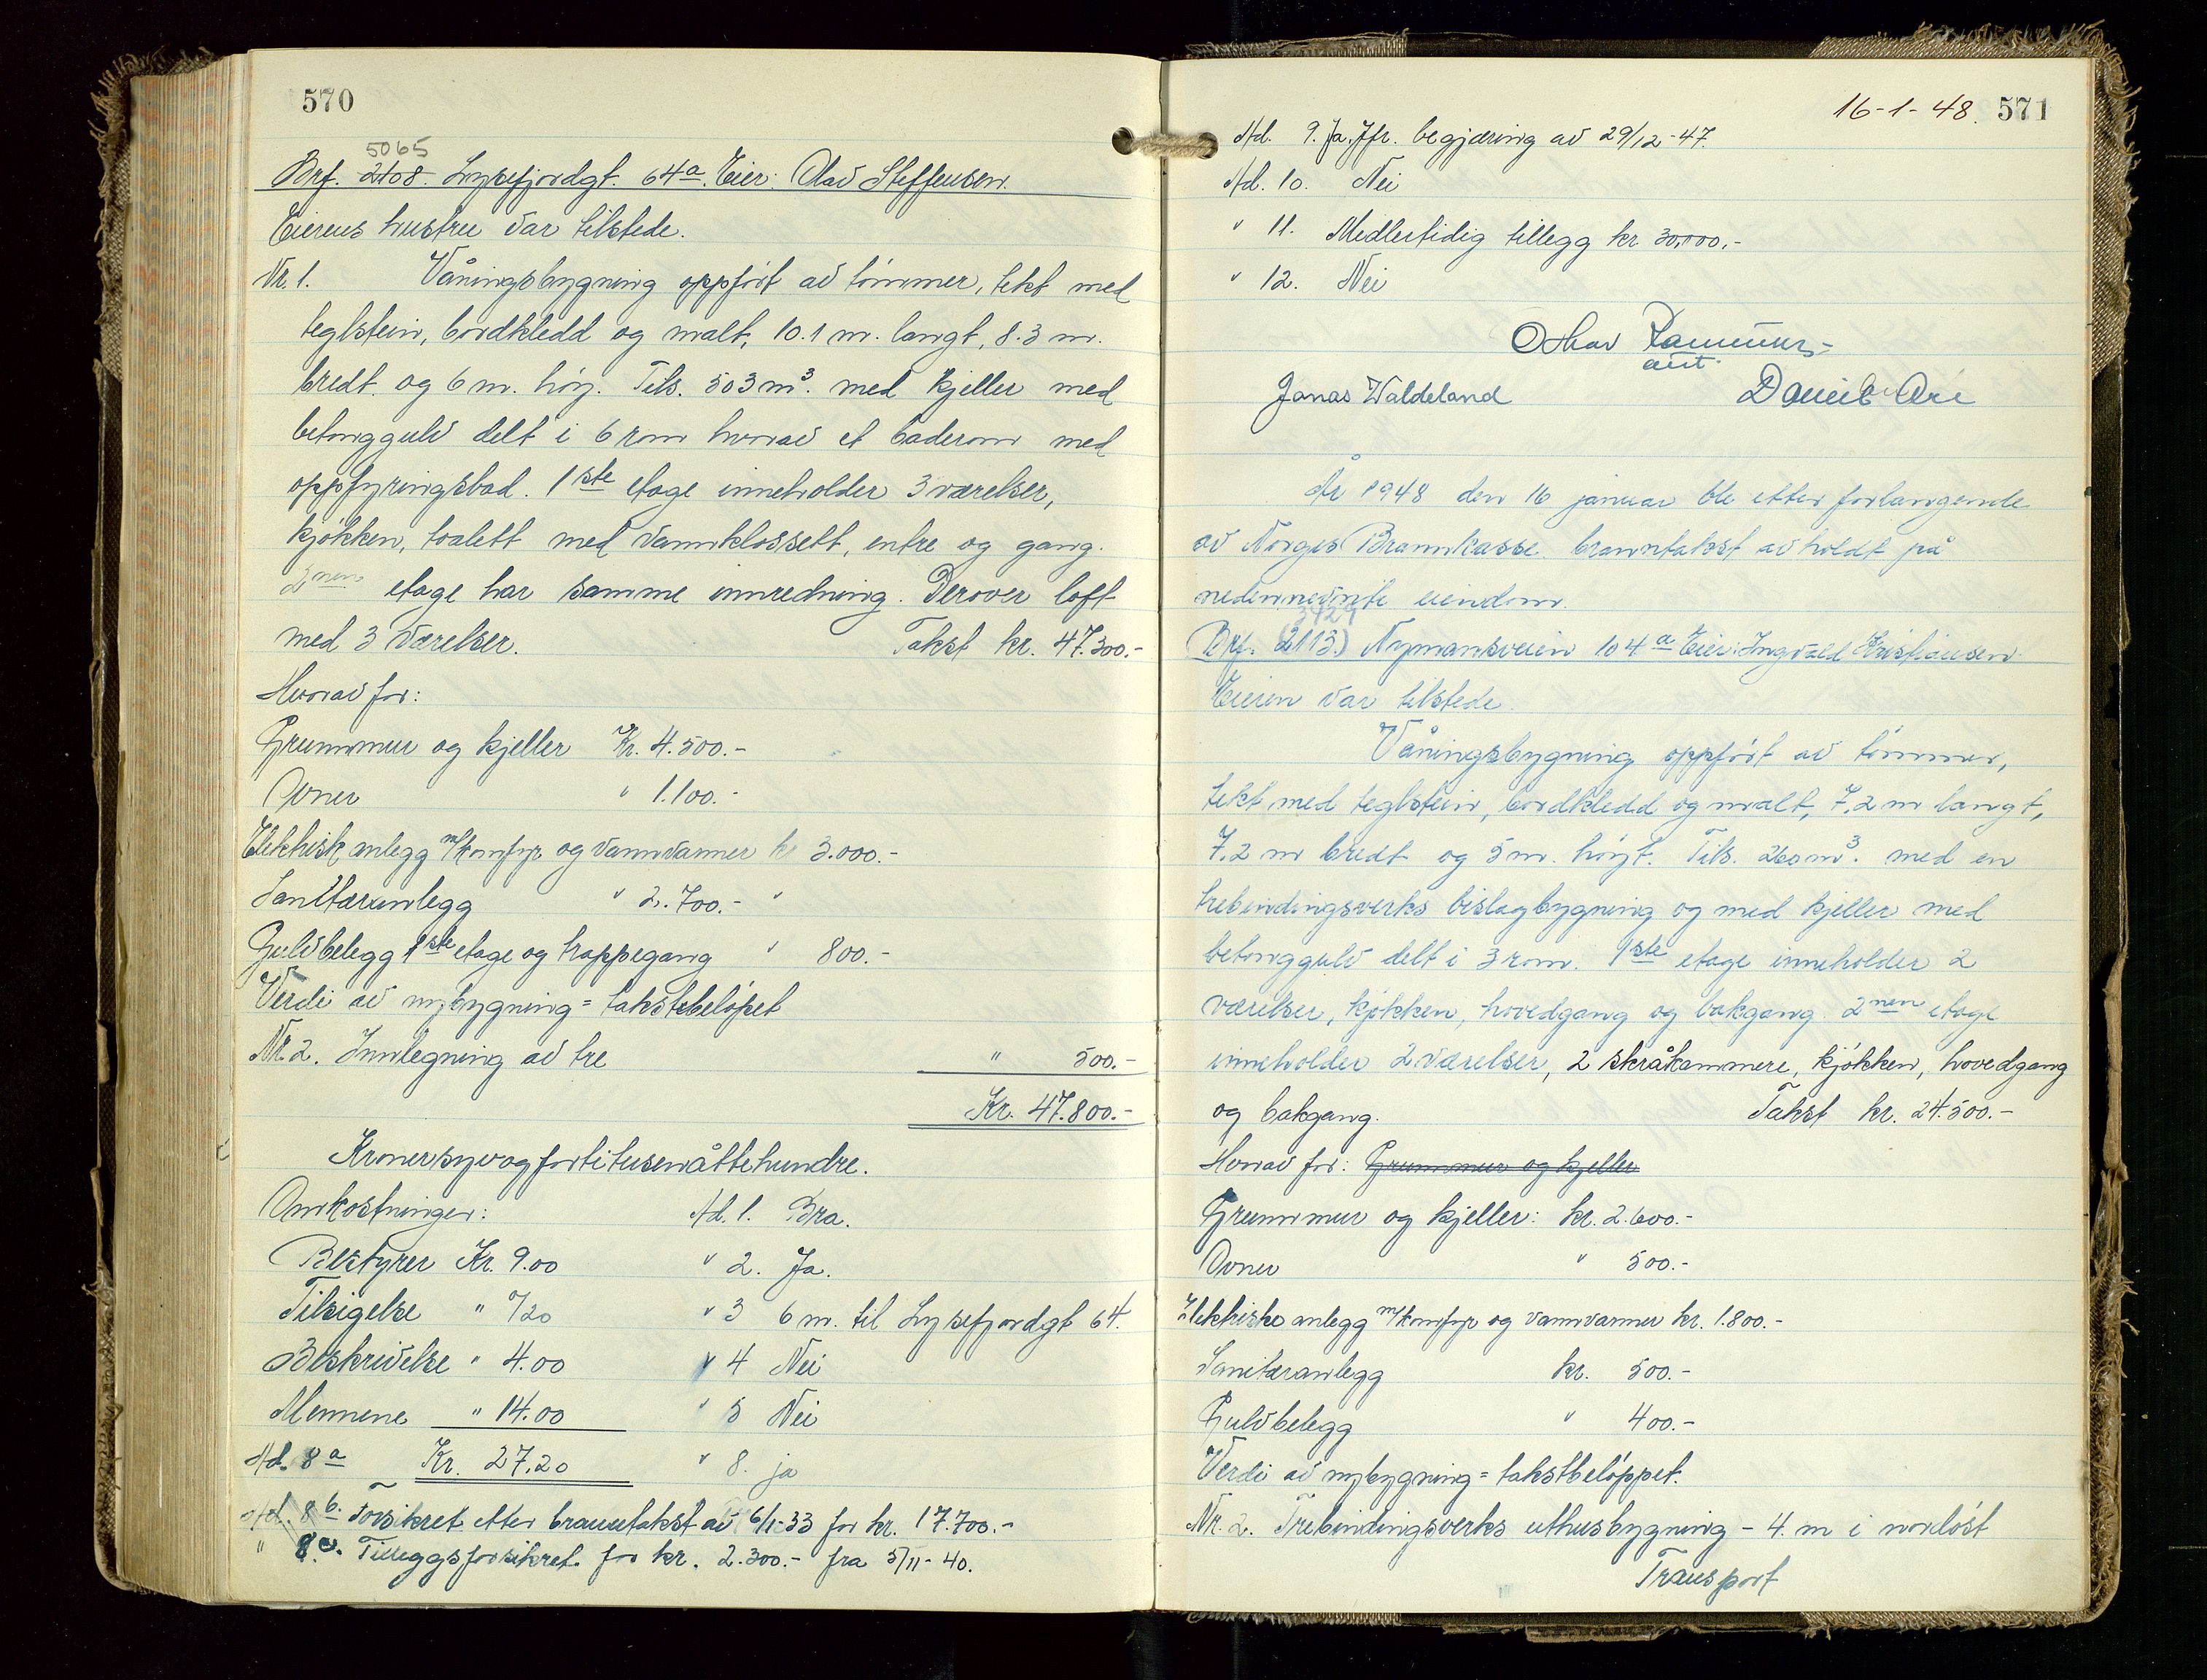 570
5065
Brf. 2108. Lysefjordgt. 64a. Eier: Olav Steffensen.
Eierens hustru var tilstede.
Nr. 1. Våningsbygning oppført av tømmer, tekt med
teglstein, bordkledd og malt, 10.1 m. langt, 8.3 m.
bredt og 6 m. høy. Tils. 503 m³. med kjeller med
betonggulv delt i 6 rom hvorav et baderom med
oppfyringsbad. 1ste etage inneholder 3 værelser,
kjøkken, toalett med vannklosset, entre og gang.
2nen etage har samme innredning. Derover loft
med 3 værelser. Takst kr. 47.300.-
Hvorav for:
Grunnmur og kjeller Kr. 4.500.-
Ovner " 1.100.-
Elektrisk anlegg m/komfyr og vannvarmer kr 3.000.-
Sanitæranlegg " 2.700.- "
Gulvbelegg 1ste etage og trappegang " 800.-
Verdi av nybygning = takstebeløpet
Nr. 2. Innlegning av tre " 500.-
Kr. 47.800.-
Kronersyvogførtitusenåttehundre.
Omkostninger: Ad. 1. Bra.
Bestyrer Kr. 9.00 " 2. Ja.
Tilsigelse " 0/20 " 3 6 m. til Lysefjordgt 64.
Beskrivelse " 4.00 " 4 Nei
Mennene " 14.00 " 5 Nei
Ad. 8a Kr. 27,20 " 8. ja
Ad. 8b. Forsikret etter branntakst av 6/1-33 for kr. 17.700.-
" 8c. Tilleggsforsikret for kr. 2.300.- fra 5/11-40.
16-1-48. 571
Ad. 9. Ja. Jfr. begjæring av 29/12-47.
Ad. 10. Nei
" 11. Medlertidig tillegg kr 30,000,-
" 12. Nei
aut.
Jonas Waldeland Daniel
År 1948 den 16 januar ble etter forlangende
av Norges Brannkasse branntakst avholdt på
nedennevnte eiendom.
3429
Brf. (2113.) Nymansveien 104a Eier: Ingvald Kristiansen.
Eieren var tilstede.
Våningsbygning oppført av tømmer,
tekt med teglstein, bordkledd og malt, 7,2 m langt,
7.2 m bredt og 5 m. høyt. Tils. 260 m³. med en
trebindingsverks bislagbygning og med kjeller med
betonggulv delt i 3 rom. 1ste etage inneholder 2
værelser, kjøkken, hovedgang og bakgang. 2nen etage
inneholder 2 værelser, 2 skråkammere, kjøkken, hovedgang
og bakgang. Takst kr. 24.500.-
Hvorav for: Grunnmur og kjeller
Grunnmur og kjeller: kr. 2.600.-
Ovner " 500.-
Elektriske anlegg m/komfyr og vannvarmer kr. 1.800.-
Sanitæranlegg kr. 500.-
Gulvbelegg " 400.-
Verdi av nybygning = takstbeløppet.
Nr. 2. Trebindingsverks uthusbygning - 4. m i nordøst
Transport